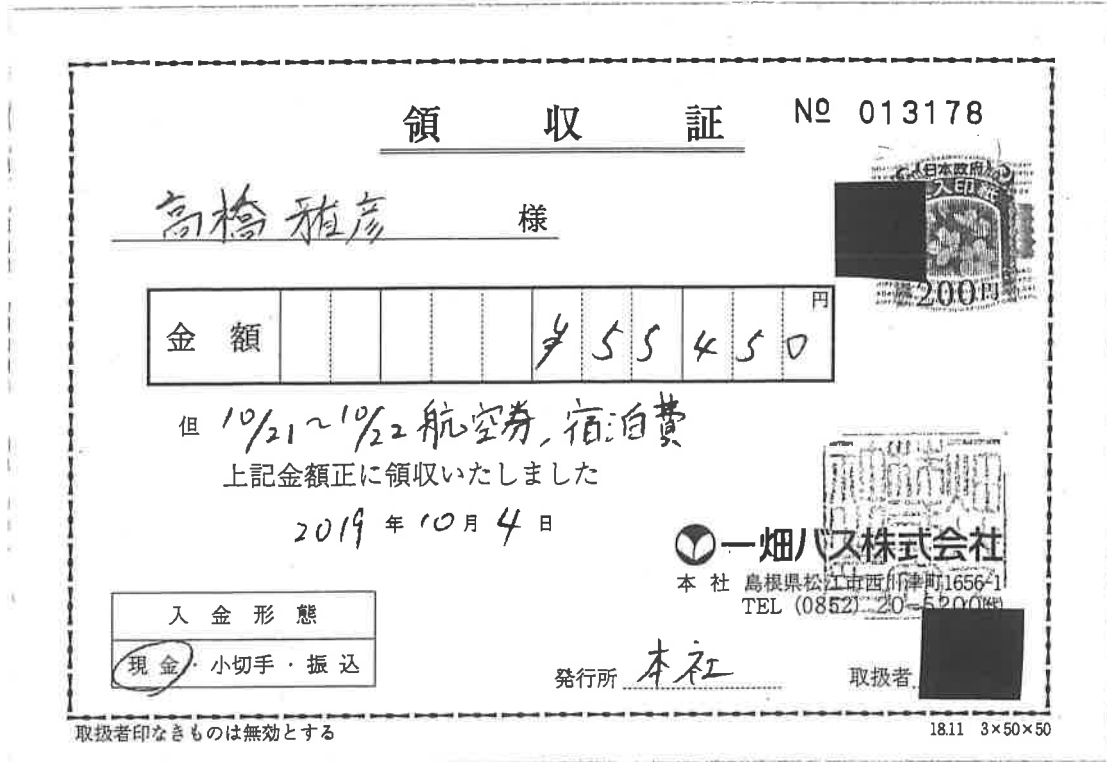 領収証
№ 013178
日本政府
収入印紙
200円
高橋 雅彦 様
金額 ¥55450 円
但 10/21~10/22 航空券、宿泊費
上記金額正に領収いたしました
2019年10月4日
一畑バス株式会社
本社 島根県松江市西川津町1656-1
TEL (0852) 20-5200㈹
入金形態
現金・小切手・振込
発行所 本社
取扱者
取扱者印なきものは無効とする
18.11 3×50×50